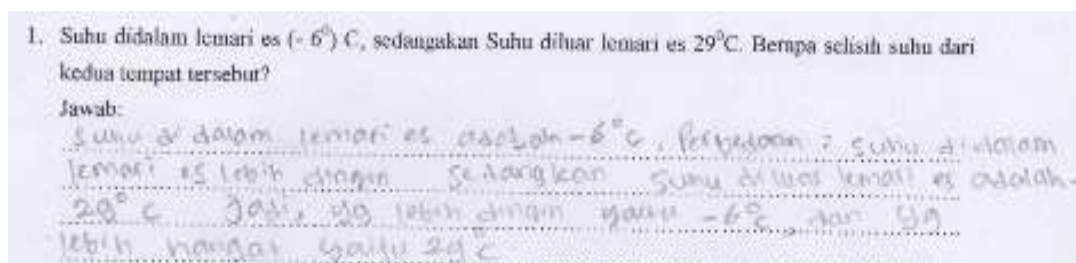 1. Suhu didalam lemari es (- 6⁰) C, sedangakan Suhu diluar lemari es 29⁰C. Berapa selisih suhu dari
kedua tempat tersebut?
Jawab:
Suhu di dalam lemari es adalah -6°C, Perbedaan : suhu didalam
lemari es lebih dingin sedangkan suhu diluar lemari es adalah
29°C Jadi, yg lebih dingin yaitu -6°C, dan yg
lebih hangat yaitu 29°C